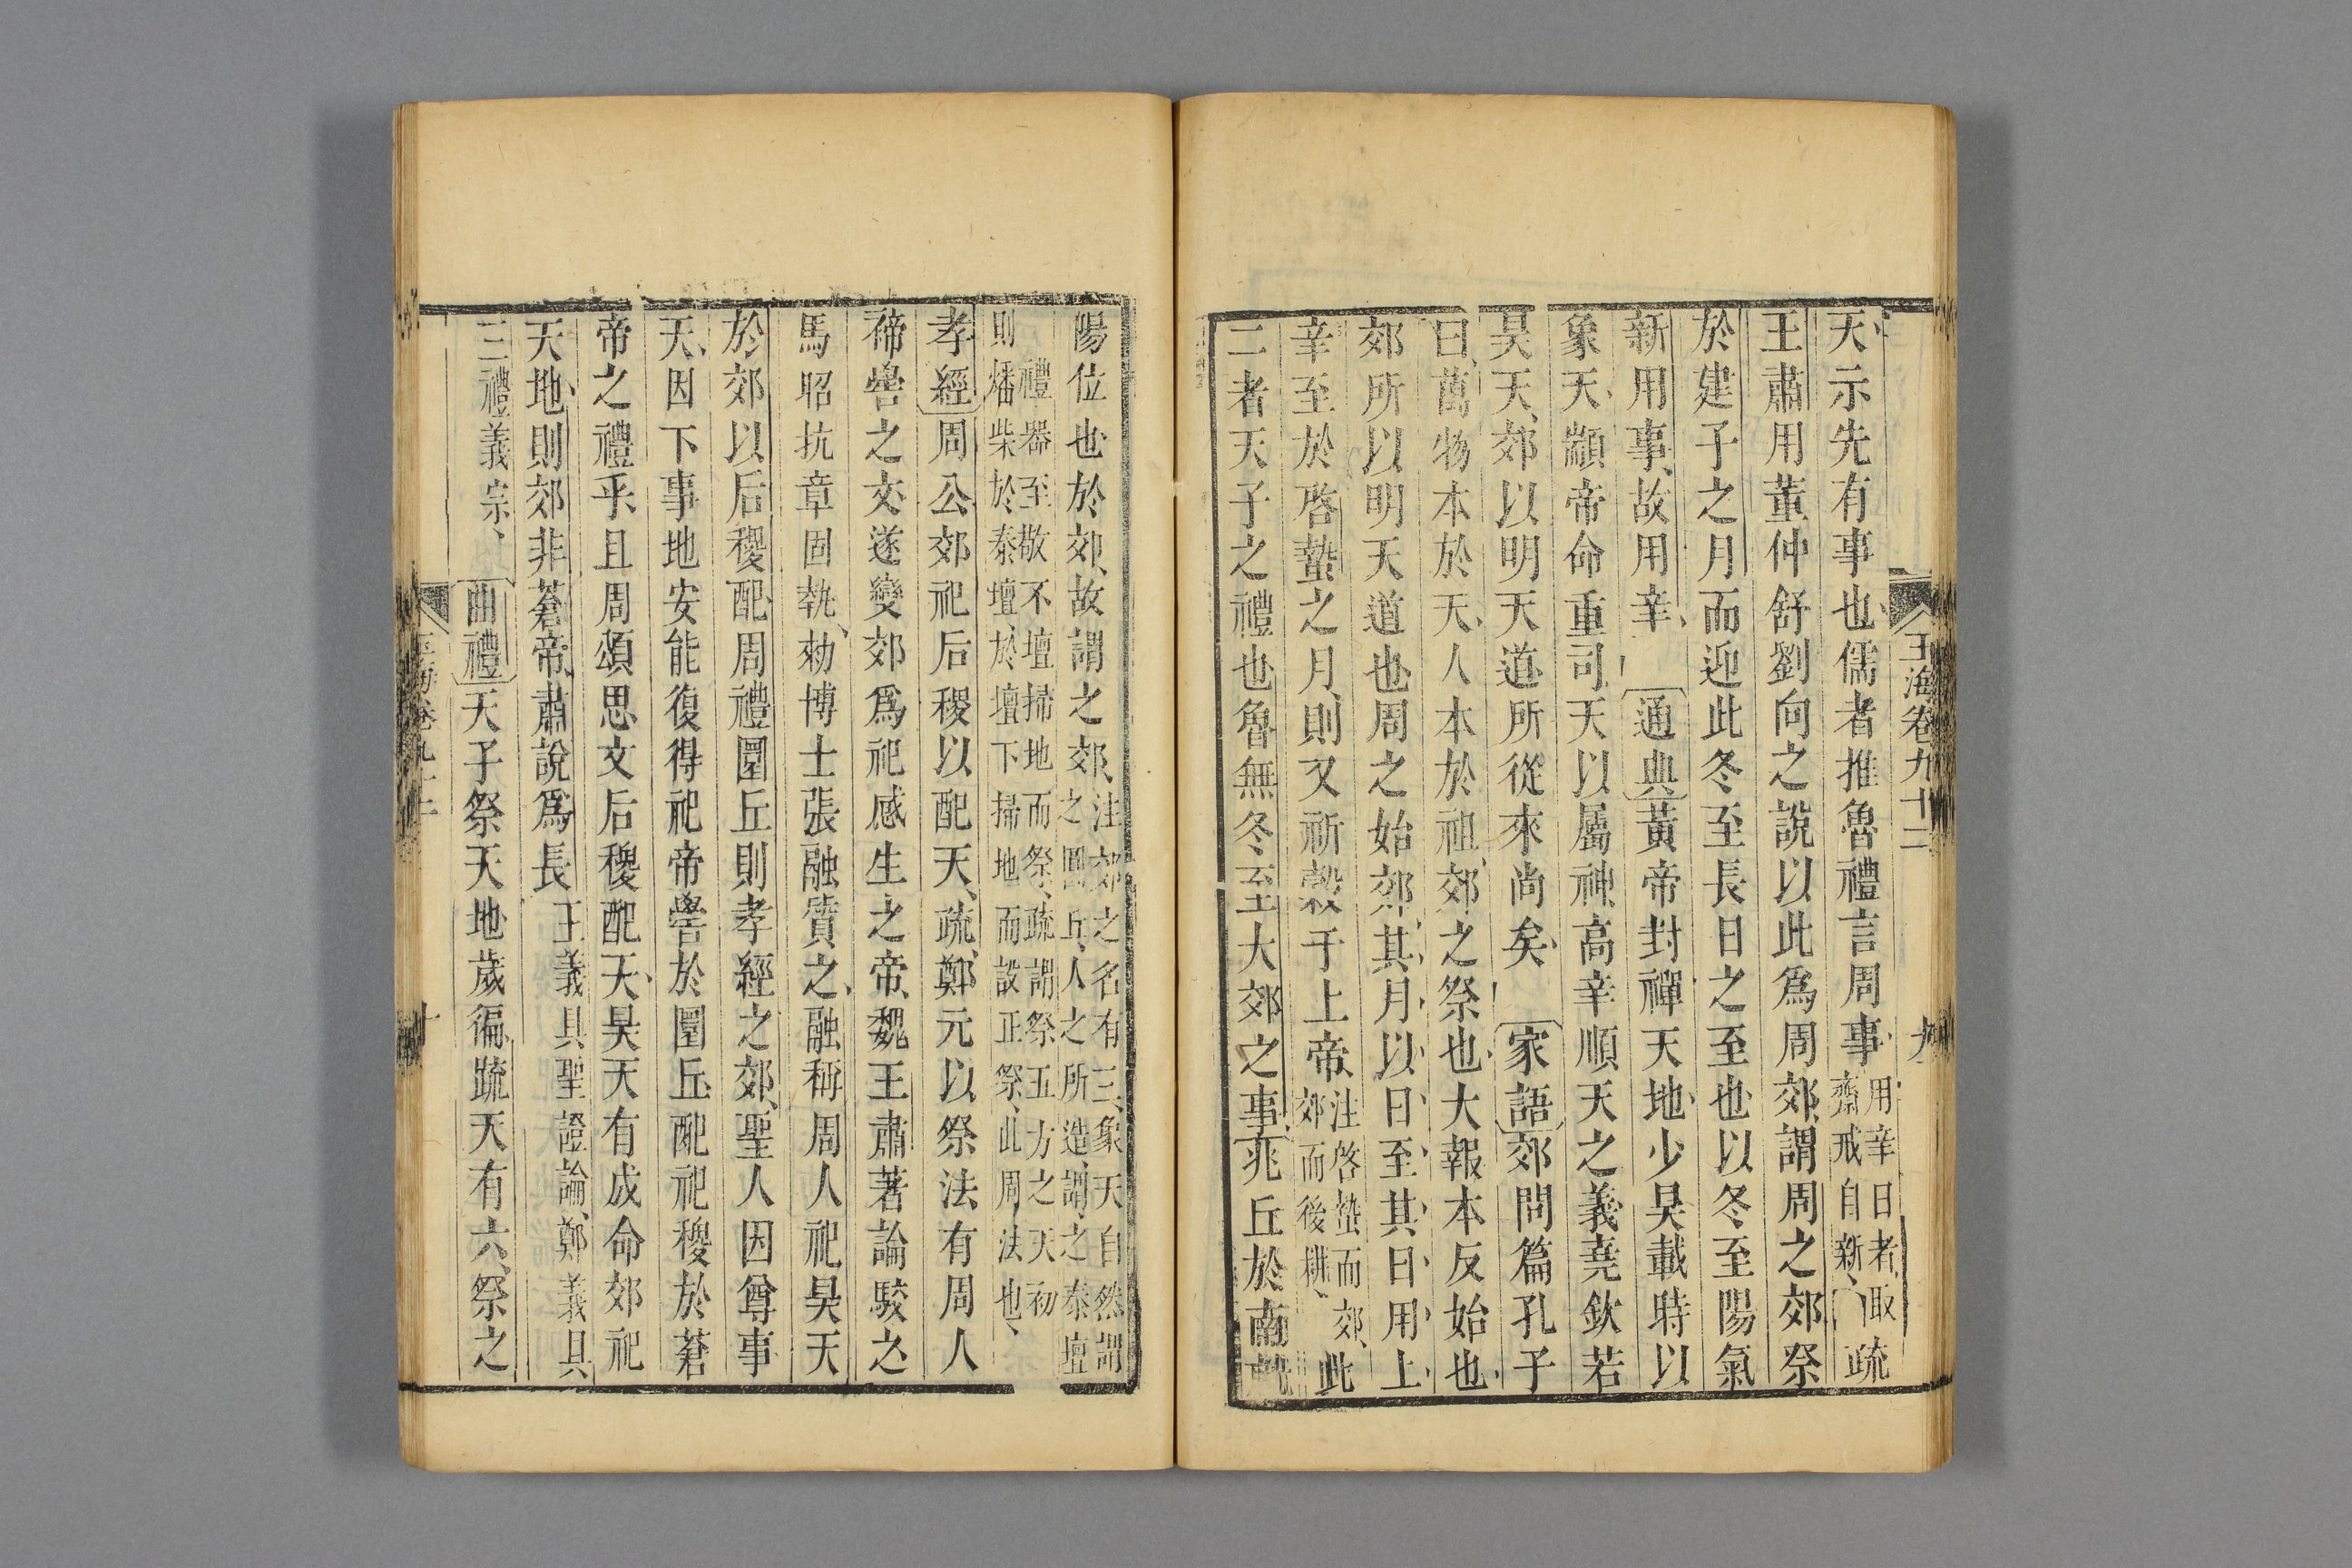 玉海卷九十二
九
天示先有事也儒者推魯禮言周事用辛日者取齋戒自新疏
王肅用董仲舒劉向之說以此爲周郊謂周之郊祭
於建子之月而迎此冬至長日之至也以冬至陽氣
新用事故用辛通典黃帝封禪天地少昊載時以
象天顓帝命重司天以屬神高辛順天之義堯欽若
昊天郊以明天道所從來尚矣家語郊問篇孔子
曰萬物本於天人本於祖郊之祭也大報本反始也
郊所以明天道也周之始郊其月以日至其日用上
辛至於啓蟄之月則又祈穀于上帝注啓蟄而郊郊而後耕此
二者天子之禮也魯無冬至大郊之事兆丘於南
陽位也於郊故謂之郊注郊之名有三象天自然謂之圜丘人之所造謂之泰壇
禮器至敬不壇掃地而祭疏謂祭五方之天初則燔柴於泰壇於壇下掃地而設正祭此周法也
孝經周公郊祀后稷以配天疏鄭元以祭法有周人
禘嚳之文遂變郊爲祀感生之帝魏王肅著論駁之
馬昭抗章固執勑博士張融質之融稱周人祀昊天
於郊以后稷配周禮圜丘則孝經之郊聖人因尊事
天因下事地安能復得祀帝嚳於圜丘配祀稷於蒼
帝之禮乎且周頌思文后稷配天昊天有成命郊祀
天地則郊非蒼帝肅說爲長王義具聖證論鄭義具
三禮義宗曲禮天子祭天地歲徧疏天有六祭之
十